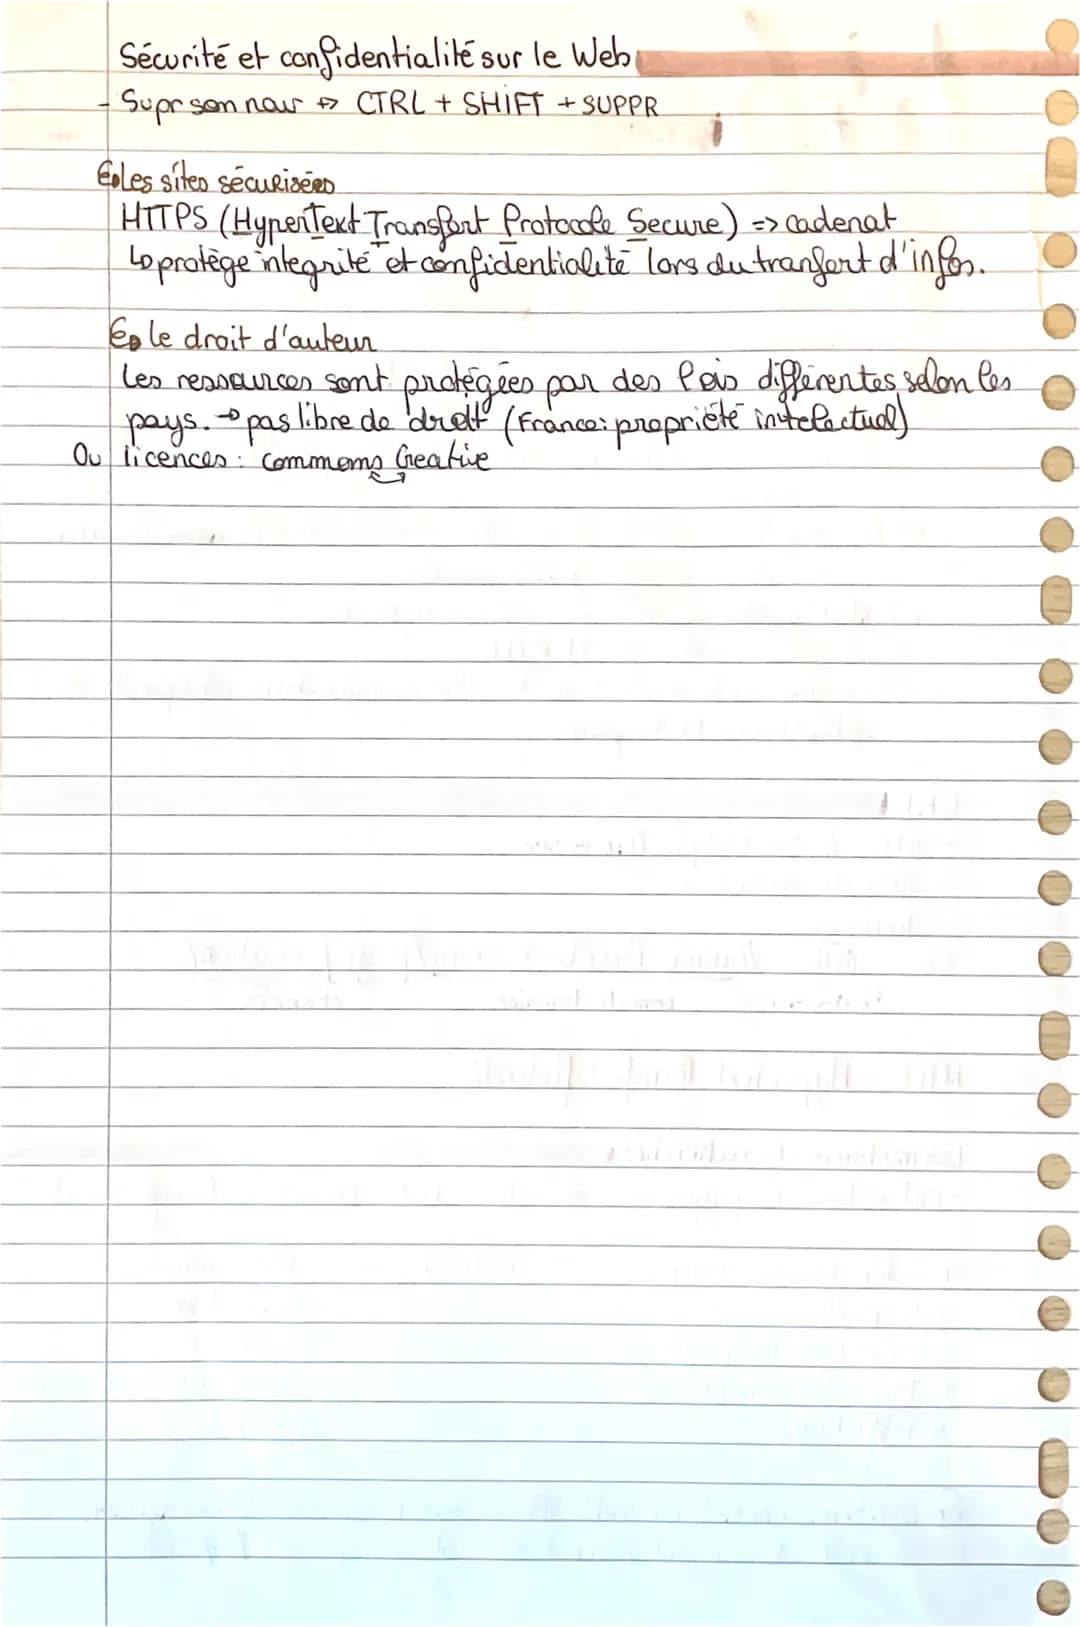 Sécurité et confidentialité sur le Web
- Supr son nav ↔ CTRL + SHIFT + SUPPR
les sites sécurisées
HTTPS (HyperText Transfert Protocole Secure) => cadenat
↳ protège integrité et confidentialité lors du tranfert d'infos.
le droit d'auteur
les ressources sont protégées par des lois différentes selon les
pays. → pas libre de droit (France: propriété intelectuel)
Ou licences: commoms Creative